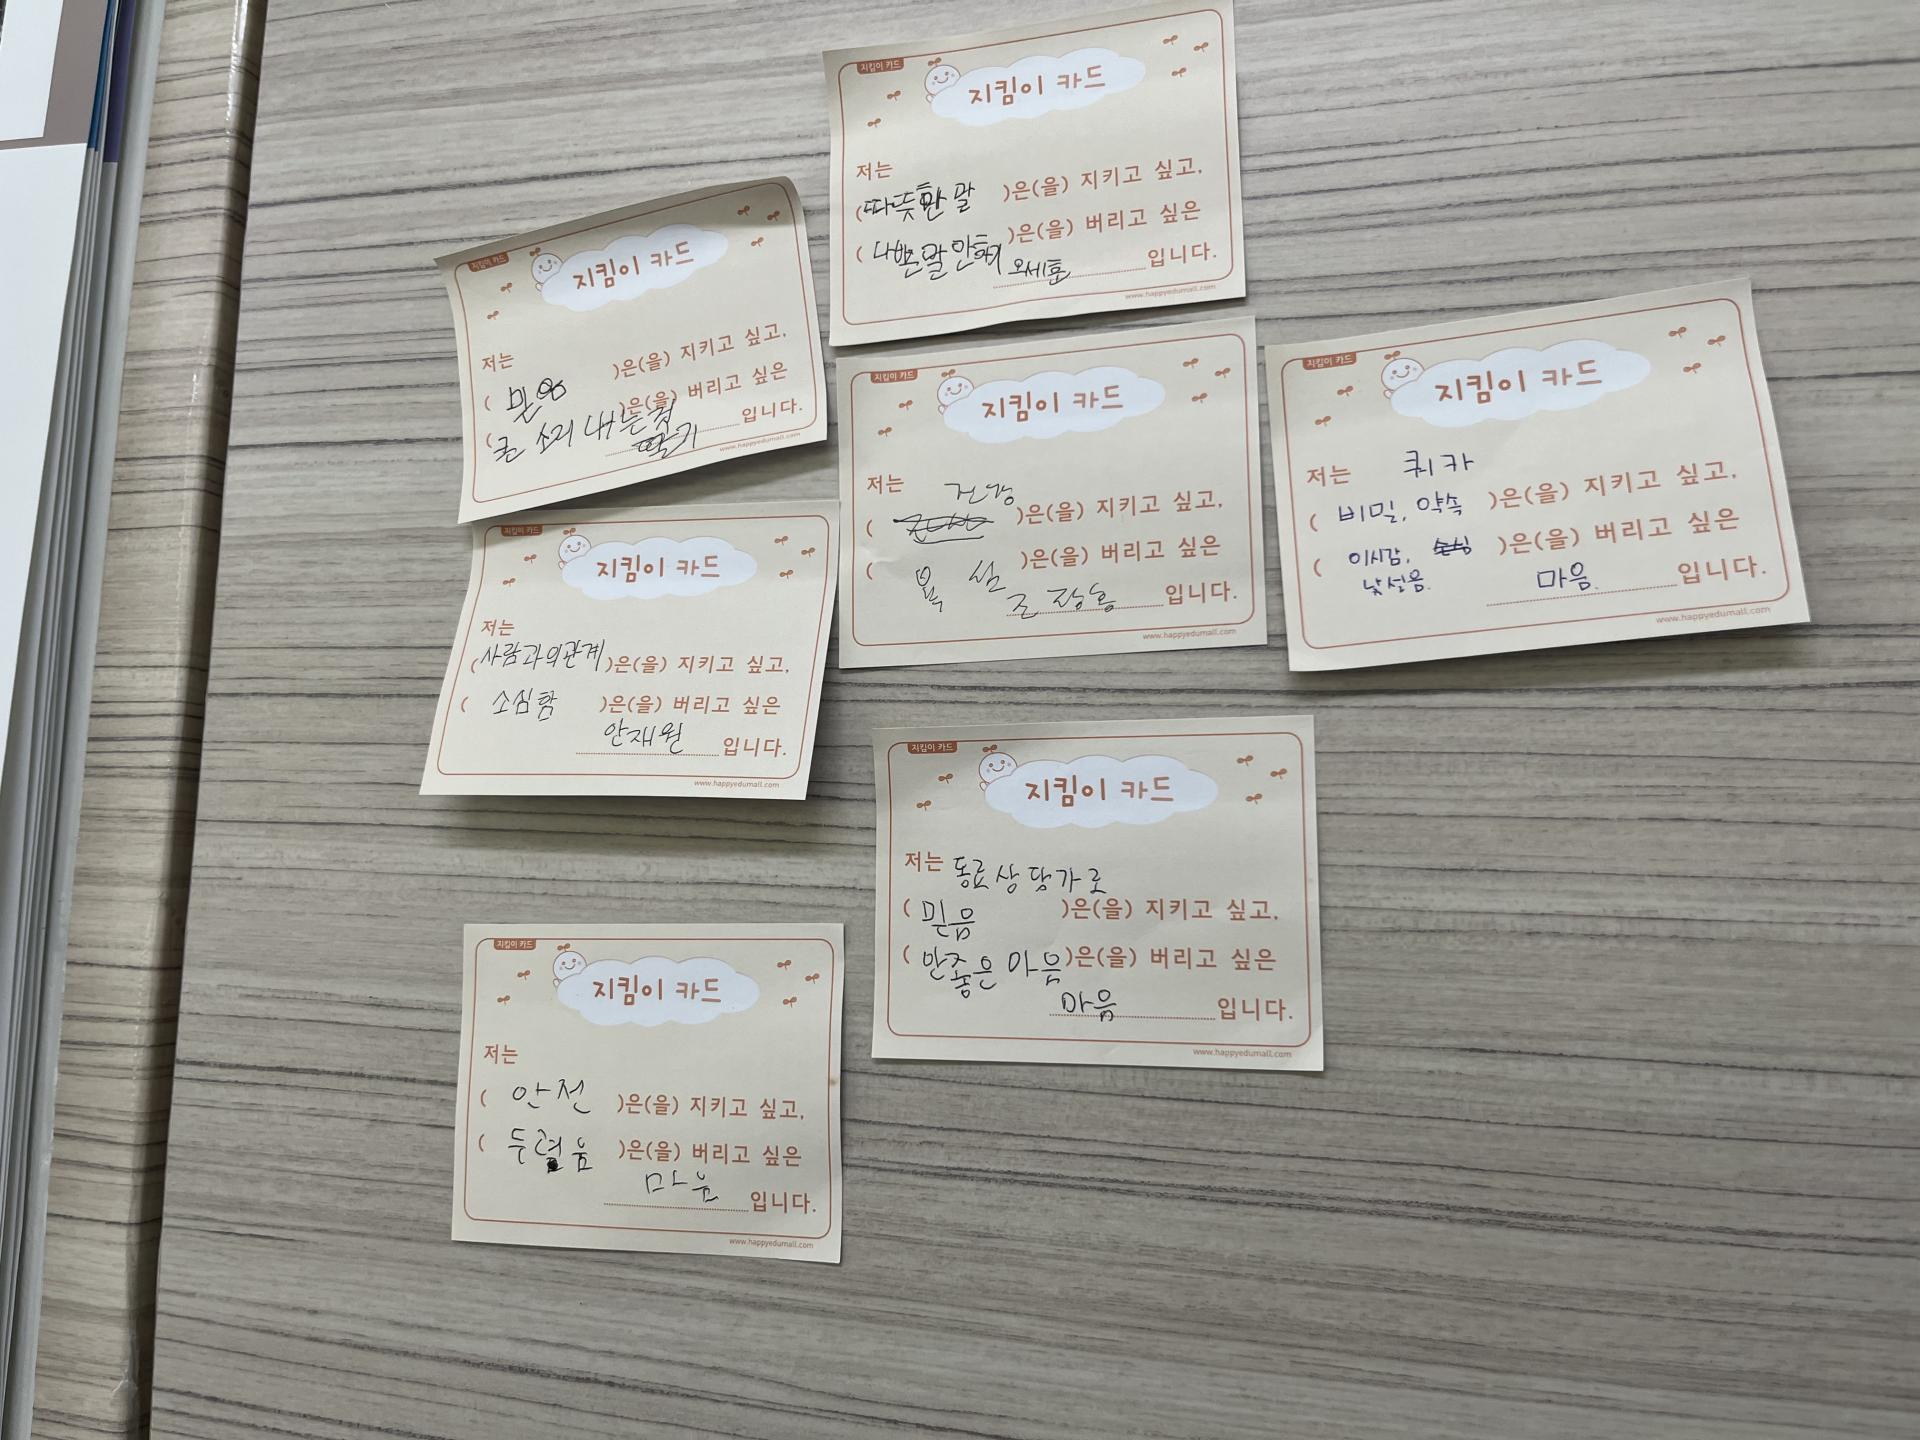 지킴이 카드
지킴이 카드
저는
(따뜻한 말 )은(을) 지키고 싶고,
(나쁜말 안하기 )은(을) 버리고 싶은
오세훈 입니다.
www.happyedumall.com
지킴이 카드
지킴이 카드
저는
( 믿음 )은(을) 지키고 싶고,
(큰 소리 내는것 )은(을) 버리고 싶은
딸기 입니다.
www.happyedumall.com
지킴이 카드
지킴이 카드
저는 건강
( )은(을) 지키고 싶고,
( 욕심 )은(을) 버리고 싶은
조장흥 입니다.
www.happyedumall.com
지킴이 카드
지킴이 카드
저는 쿼카
( 비밀, 약속 )은(을) 지키고 싶고,
( 이시감, )은(을) 버리고 싶은
낯설음. 마음. 입니다.
www.happyedumall.com
지킴이 카드
지킴이 카드
저는
(사람과의관계)은(을) 지키고 싶고,
( 소심함 )은(을) 버리고 싶은
안재원 입니다.
www.happyedumall.com
지킴이 카드
지킴이 카드
저는 동료상담가로
( 믿음 )은(을) 지키고 싶고,
( 안좋은 마음)은(을) 버리고 싶은
마음 입니다.
www.happyedumall.com
지킴이 카드
지킴이 카드
저는
( 안전 )은(을) 지키고 싶고,
( 두렵움 )은(을) 버리고 싶은
마음 입니다.
www.happyedumall.com